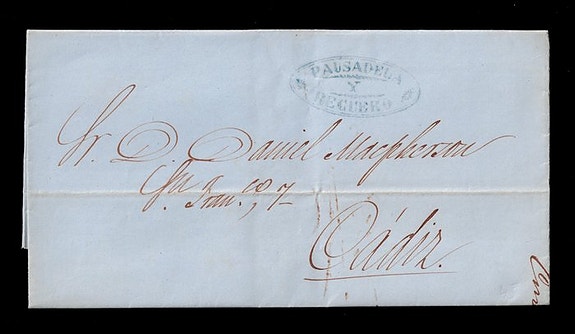 PAUSADELA
Y
REGUERO
Sr. D. Daniel Macpherson
Sn. Fran.co, 7
Cádiz.